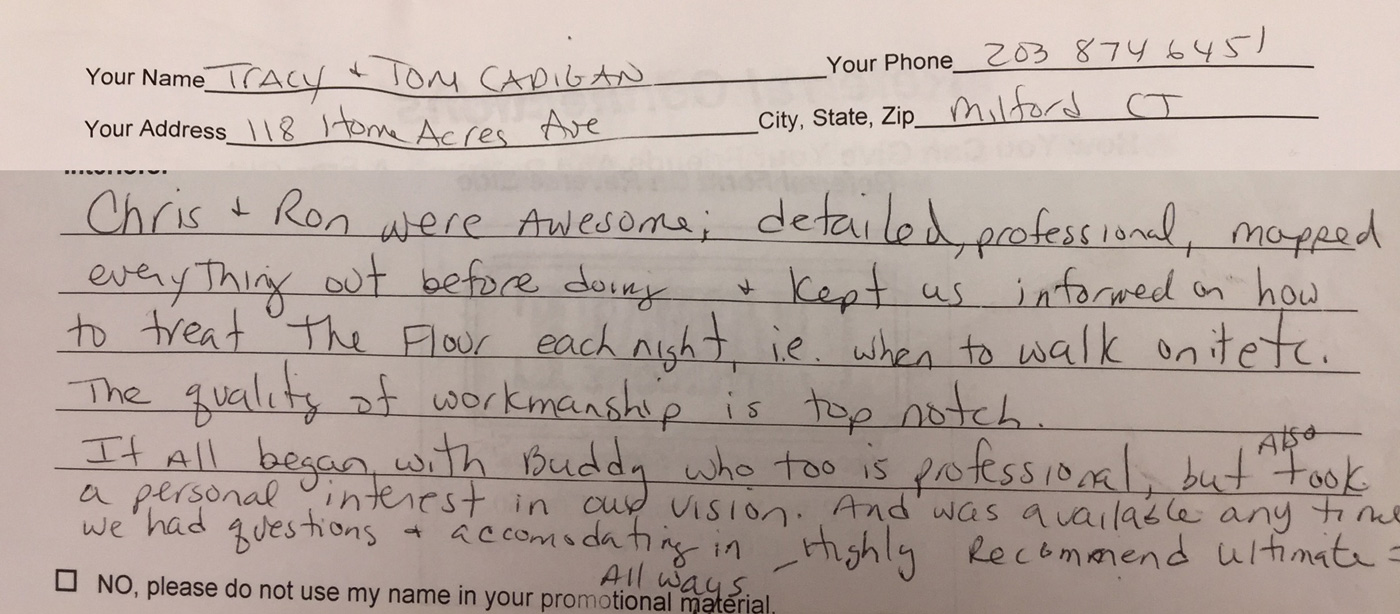 Your Name TRACY + TOM CADIGAN Your Phone 203 874 6451
Your Address 118 Home Acres Ave City, State, Zip Milford CT
Chris + Ron were Awesome; detailed, professional, mapped
everything out before doing + kept us informed on how
to treat The Flour each night, i.e. when to walk on it etc.
The quality of workmanship is top notch.
It All began with Buddy who too is professional, but Also took
a personal interest in our vision. And was available any time
we had questions + accomodating in All ways - Highly Recommend ultimate
NO, please do not use my name in your promotional material.